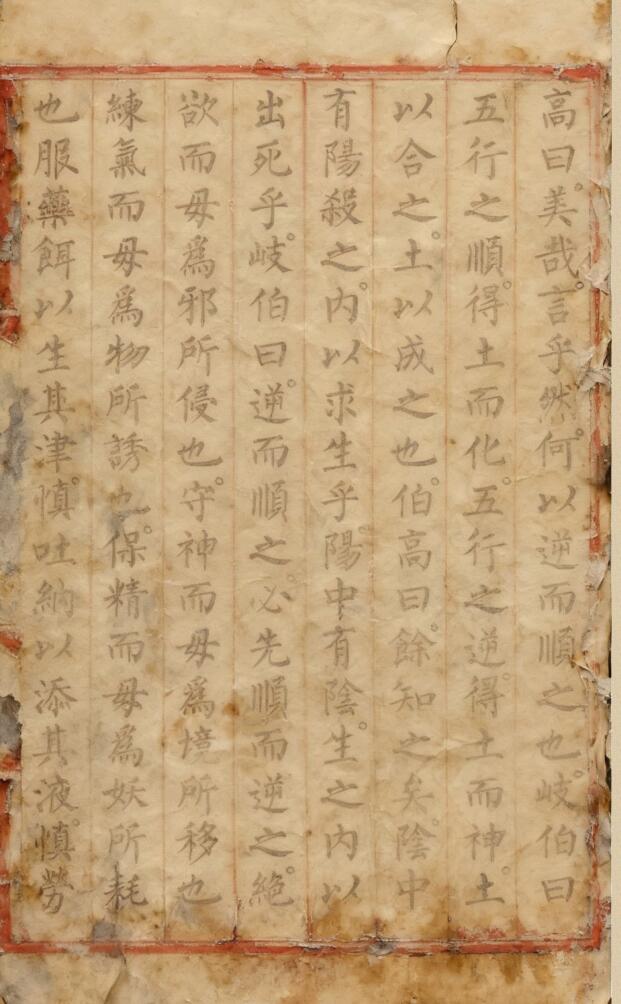 高曰。美哉。言乎然。何以逆而順之也。岐伯曰
五行之順。得土而化。五行之逆。得土而神。土
以合之。土以成之也。伯高曰。餘知之矣。陰中
有陽。殺之内。以求生乎。陽中有陰。生之内以
出死乎。岐伯曰。逆而順之。必先順而逆之。絶
欲而毋爲邪所侵也。守神而毋爲境所移也
練氣而毋爲物所誘也。保精而毋爲妖所耗
也服藥餌以生其津。慎吐納以添其液。慎勞